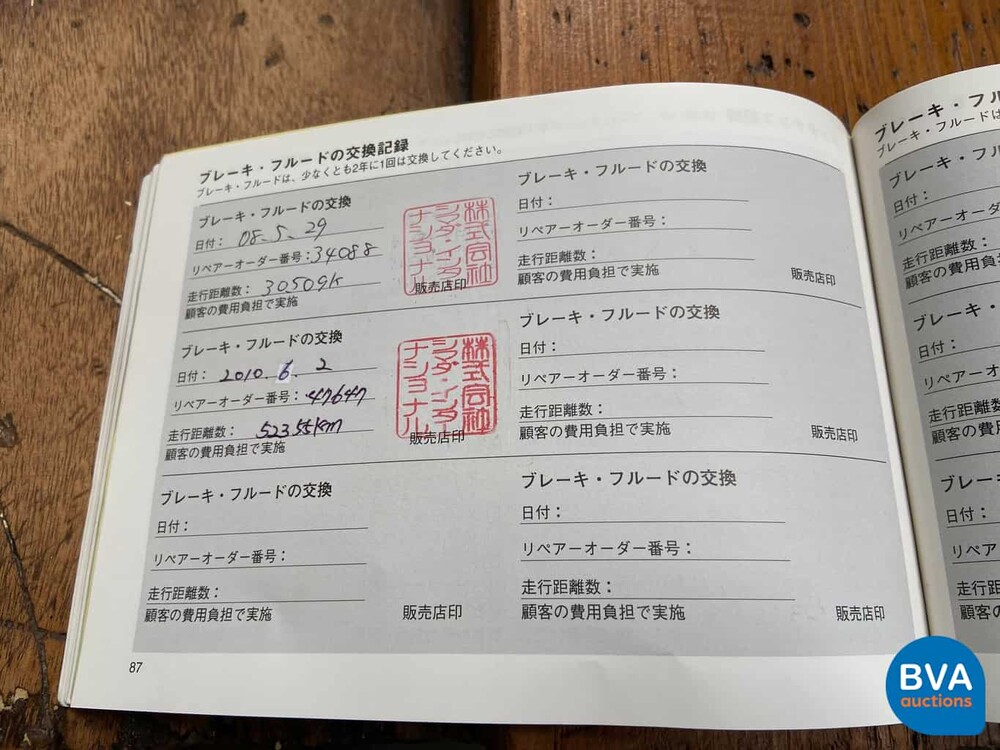 ブレーキ・フルードの交換記録
ブレーキ・フルードは、少なくとも2年に1回は交換してください。
ブレーキ・フルードの交換
日付： 08.5.29
リペアーオーダー番号：34088
走行距離数： 30509K
顧客の費用負担で実施
販売店印
株式会社
シマダ・インタ
ナショナル
ブレーキ・フルードの交換
日付： 2010.6.2
リペアーオーダー番号：47647
走行距離数： 52355km
顧客の費用負担で実施
販売店印
株式会社
シマダ・インタ
ナショナル
ブレーキ・フルードの交換
日付：
リペアーオーダー番号：
走行距離数：
顧客の費用負担で実施
販売店印
ブレーキ・フルードの交換
日付：
リペアーオーダー番号：
走行距離数：
顧客の費用負担で実施
販売店印
ブレーキ・フルードの交換
日付：
リペアーオーダー番号：
走行距離数：
顧客の費用負担で実施
販売店印
ブレーキ・フルードの交換
日付：
リペアーオーダー番号：
走行距離数：
顧客の費用負担で実施
販売店印
87
ブレーキ・フル
ブレーキ・フルードは
ブレーキ・フル
日付：
リペアーオーダ
走行距離数：
顧客の費用負
ブレーキ・フ
日付：
リペアーオー
走行距離数
顧客の費用
ブレーキ
日付：
リペアーオ
走行距離
顧客の費
BVA
auctions